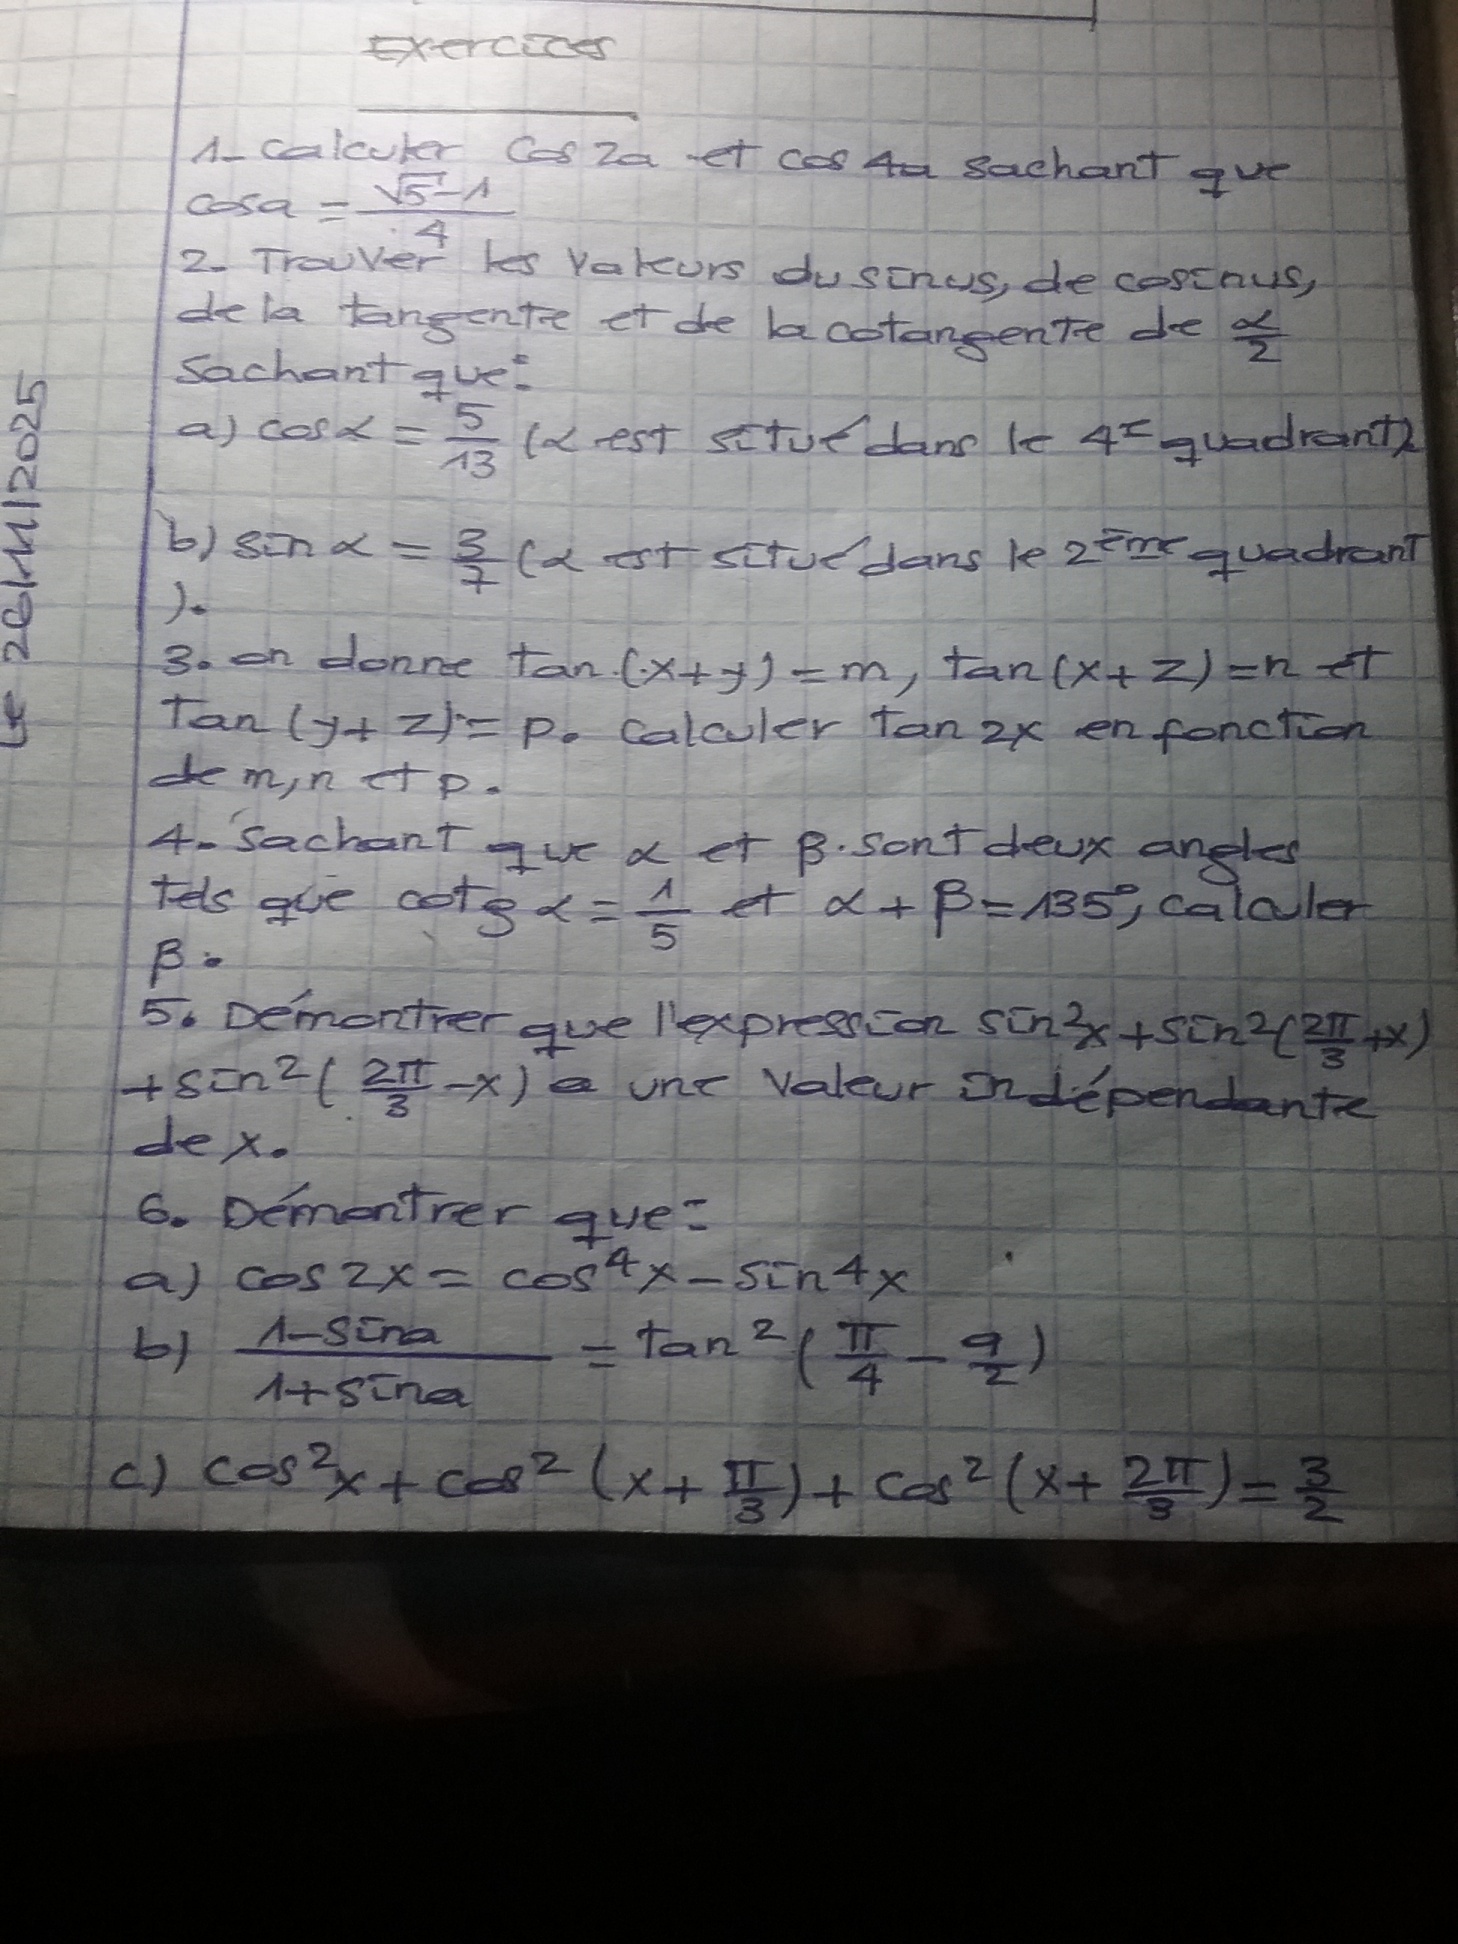 Exercices
1- Calculer cos 2a et cos 4a sachant que
cosa = (√5 - 1)/4
2. Trouver les valeurs du sinus, de cosinus,
de la tangente et de la cotangente de α/2
Sachant que:
a) cos α = 5/13 (α est situé dans le 4e quadrant)
b) sin α = 3/7 (α est situé dans le 2ème quadrant
).
3. on donne tan (x+y) = m, tan (x+z) = n et
Tan (y+z) = p. Calculer tan 2x en fonction
de m, n et p.
4. Sachant que α et β sont deux angles
tels que cotg α = 1/5 et α + β = 135°, calculer
β.
5. Démontrer que l'expression sin²x + sin²(2π/3 + x)
+ sin²(2π/3 - x) a une valeur indépendante
de x.
6. Démontrer que:
a) cos 2x = cos⁴x - sin⁴x
b) (1 - sina)/(1 + sina) = tan²(π/4 - a/2)
c) cos²x + cos²(x + π/3) + cos²(x + 2π/3) = 3/2
Le 26/11/2025